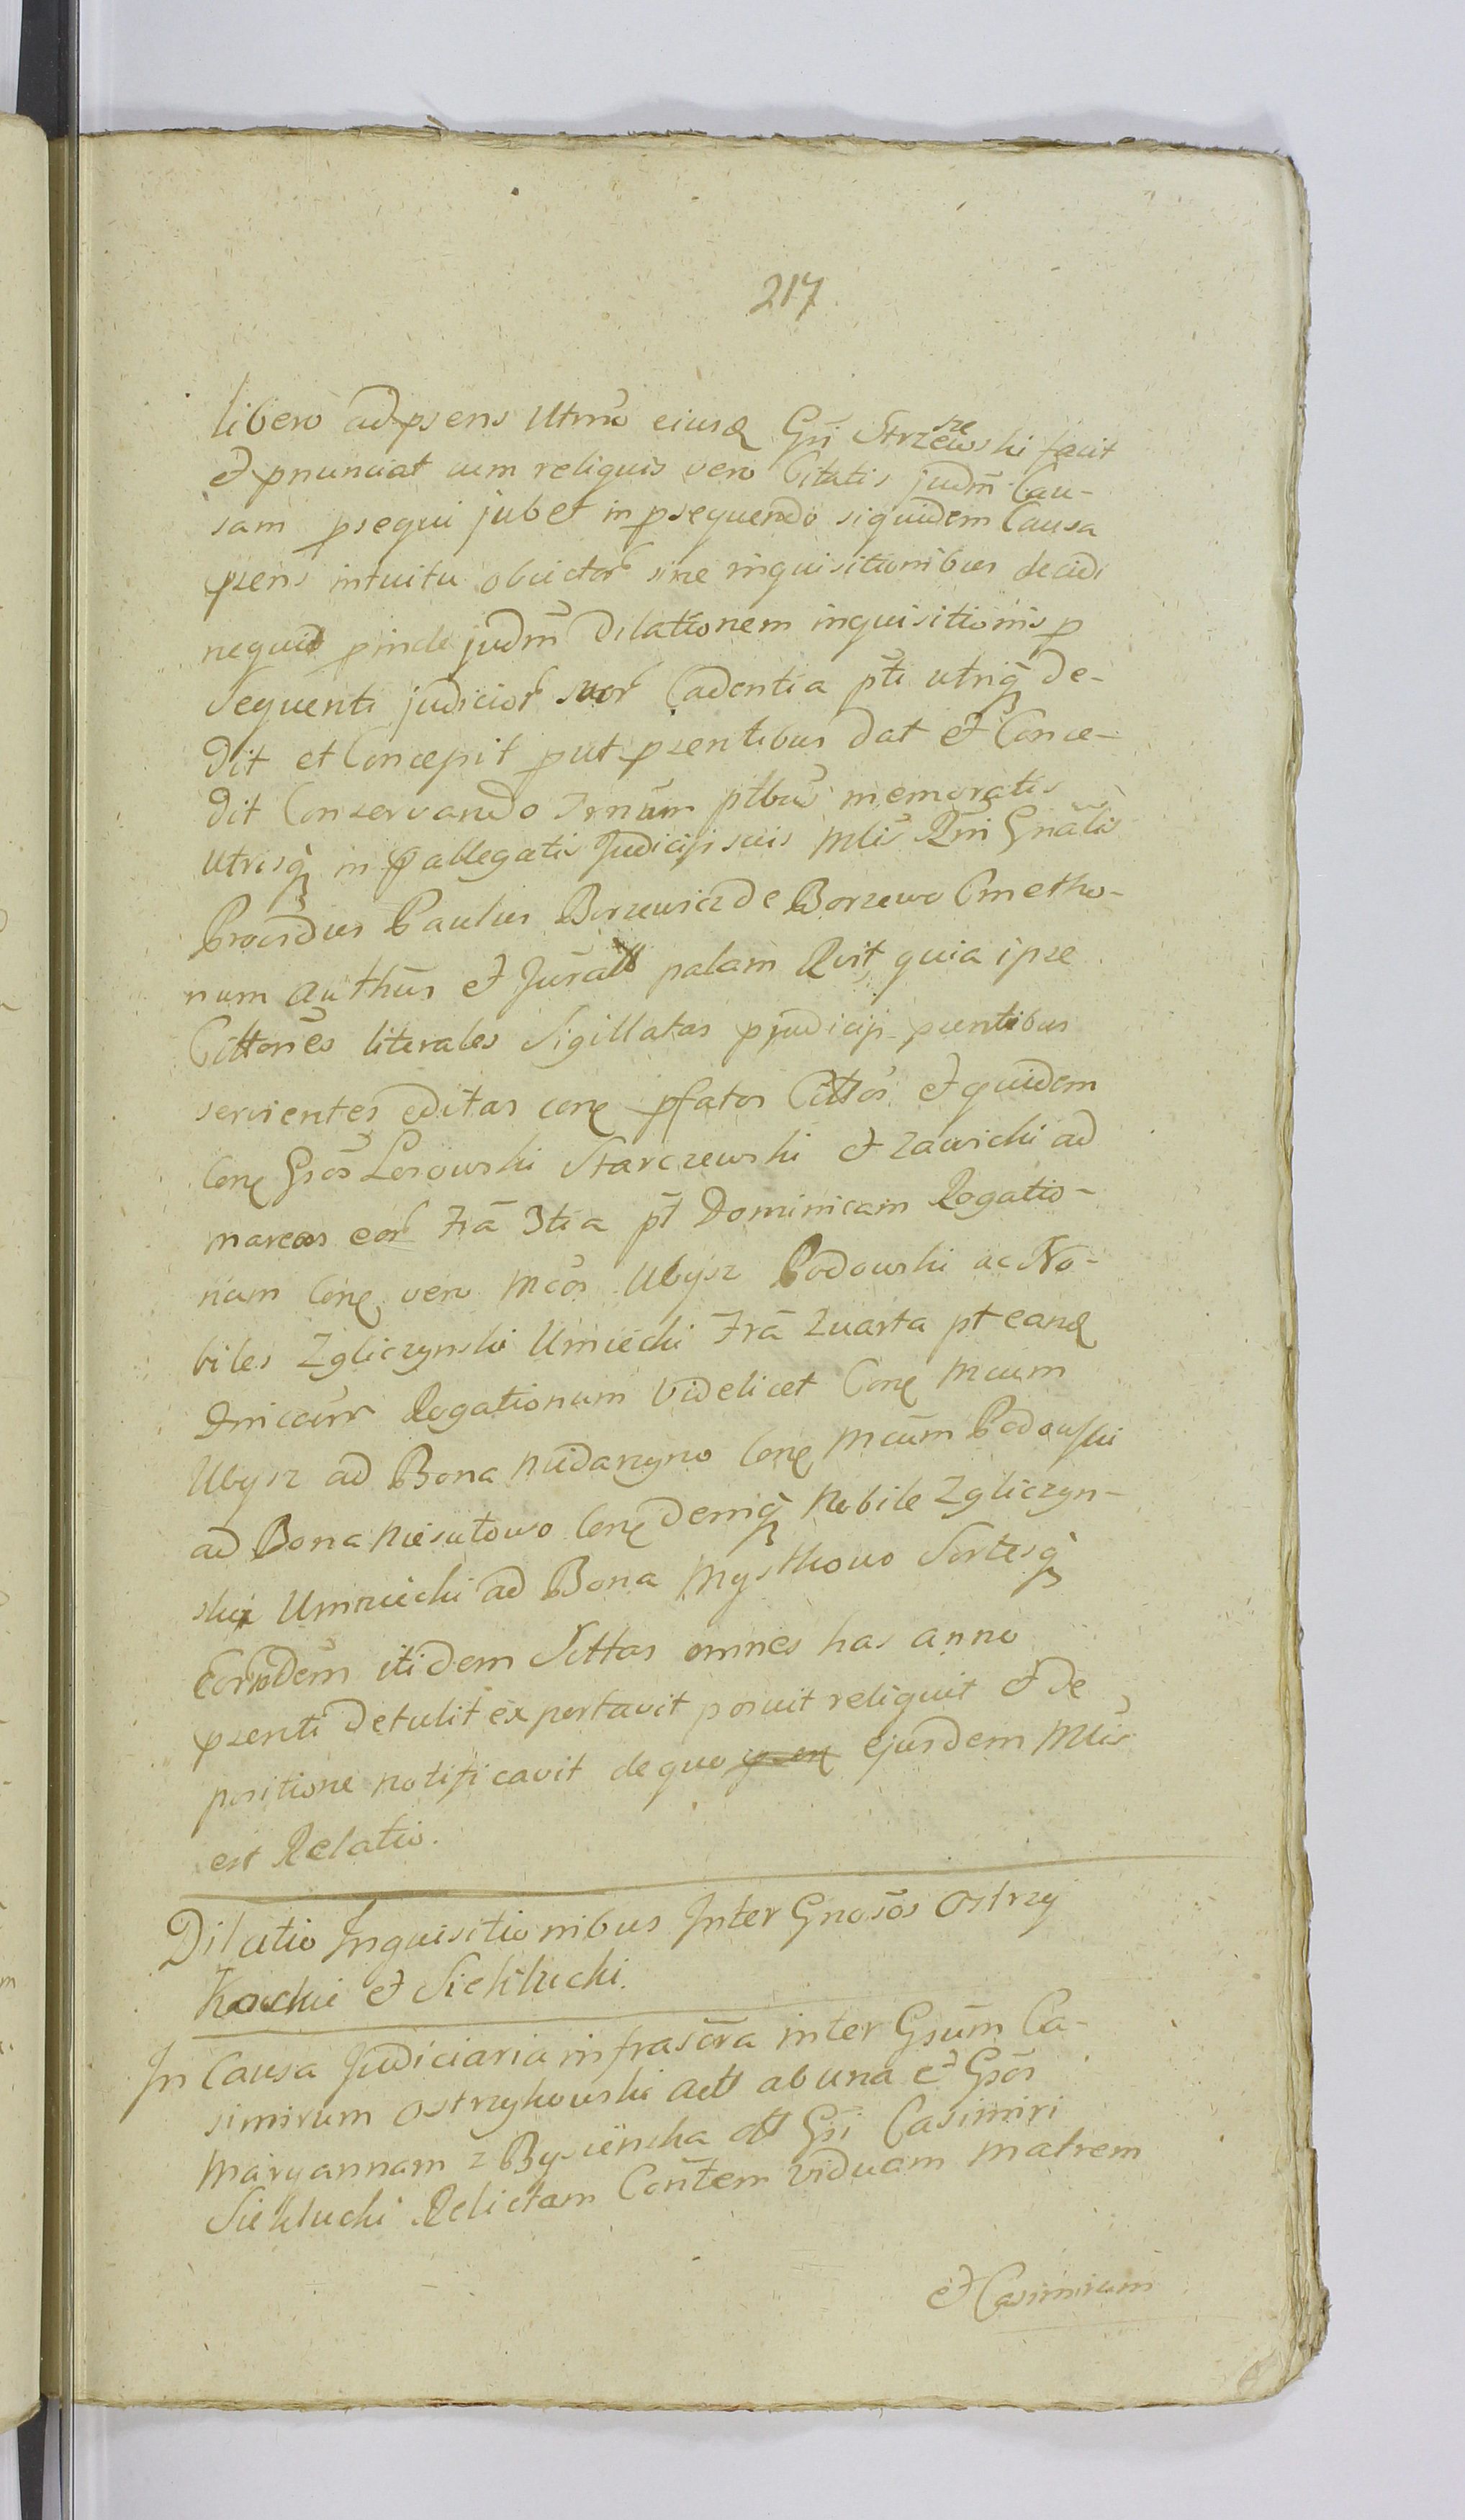 217
libero ad psens Utrũo ejusd Gsi Strzeszewski facit
et pnunciat cum reliquis vero Citatis judm̃ Cau-
sam psequi jubet in psequendo siquidem Causa
psens intuitu obiector sine inquisitionibus decidi
nequid pinde judm̃ Dilationem inquisitionis p
Sequenti judicior suor Cadentia pti utriq̃ de-
dit et Concepit put psentibus dat et Conce-
dit Conservando Trnũm ptbus memoratis
Utrisq̃ in pallegatis Judicij suis Mlis Rni Gnãlis
Providus Paulus Borzewicz de Borzewo Cmetho-
num Authũs et Jurat palam Rvit quia ipse
Cittones literales Sigillatas p judicij psentibus
servientes editas con pfatos Cittos et quidem
Con Gsos Lesowski Starczewski et Zawichi ad
marcas eor Fra 3tia pt Dominicam Rogatio-
num Con vero Mcos Ubysz Podowski ac No-
biles Zgliczynski Umiecki Fra Quarta pt eand
Dnicam Rogationum Videlicet Con Mcum
Ubysz ad Bona Nidarzyno Con Mcum Podowski
ad Bona Niesutowo Con deniq̃ Nobile Zgliczyn-
ski Umiecki ad Bona Mysthowo Sortesq̃
Eorũdem itidem Sittas omnes has anno
psenti detulit exportavit posuit reliquit et de
positione notificavit de quo ejusdem Mlis
est Relatio.
Dilatio Inquisitionibus Inter Gnosos Ostrzy
Kowski et Siekluchi
In Causa Judiciaria infrascra inter Gsũm Ca-
simirum Ostrzykowski Actt ab una et Gsos
Maryannam z Bysiencka olt Gsi Casimiri
Siekluchi Relictam Contem viduam matrem
et Casimirum